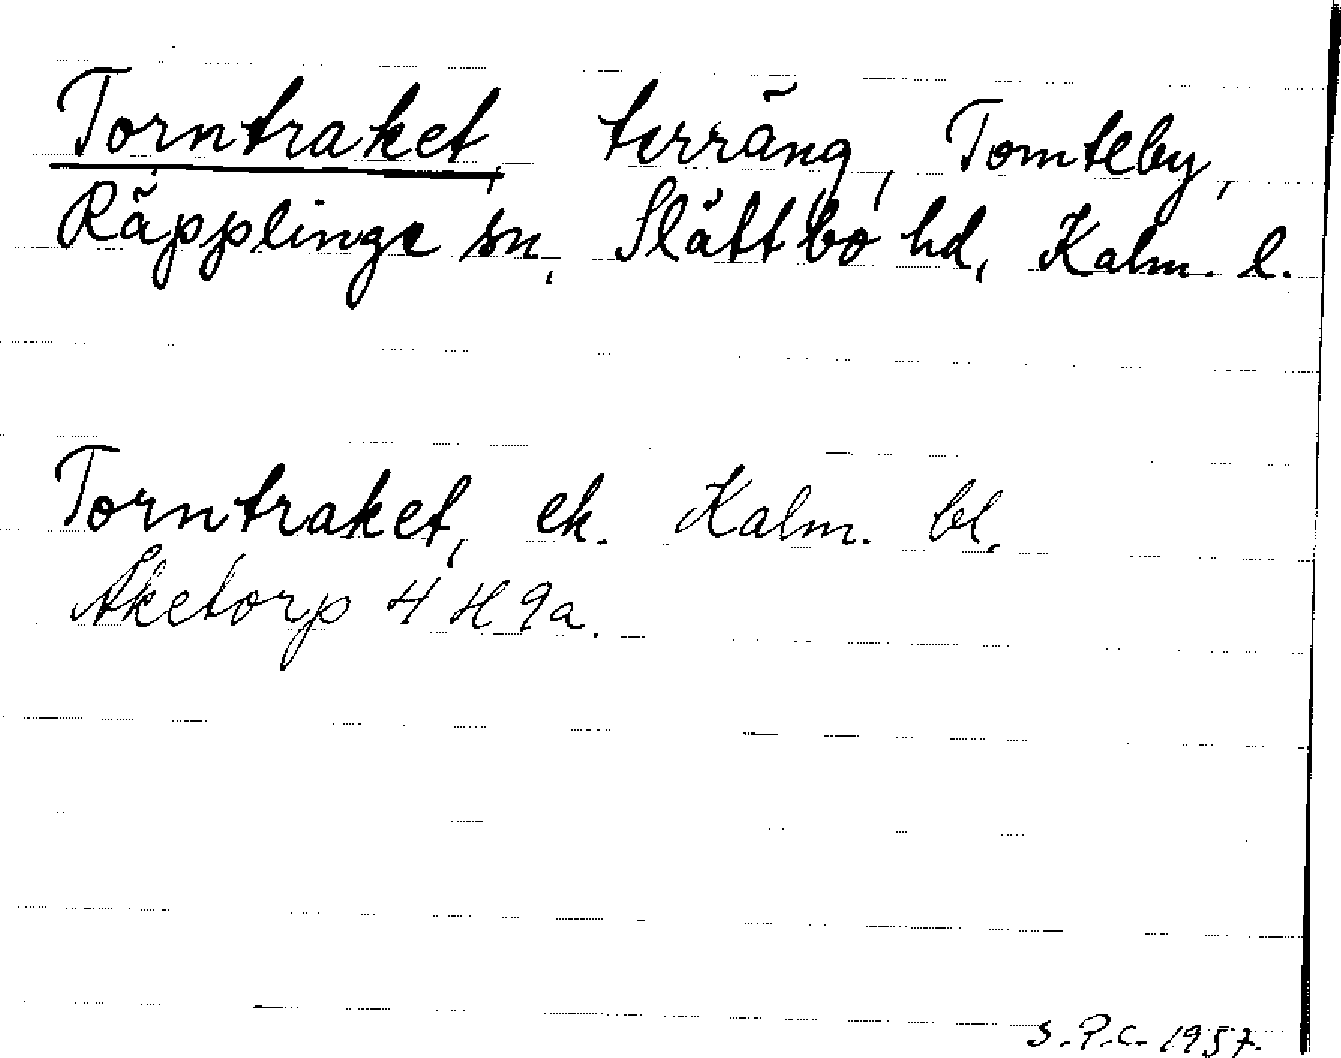 Torntraket, terräng, Tomteby,
Räpplinge sn, Slättbo hd, Kalm. l.
Torntraket, ek. Kalm. bl.
Åketorp 4 H 9a.
S.P.C. 1957.